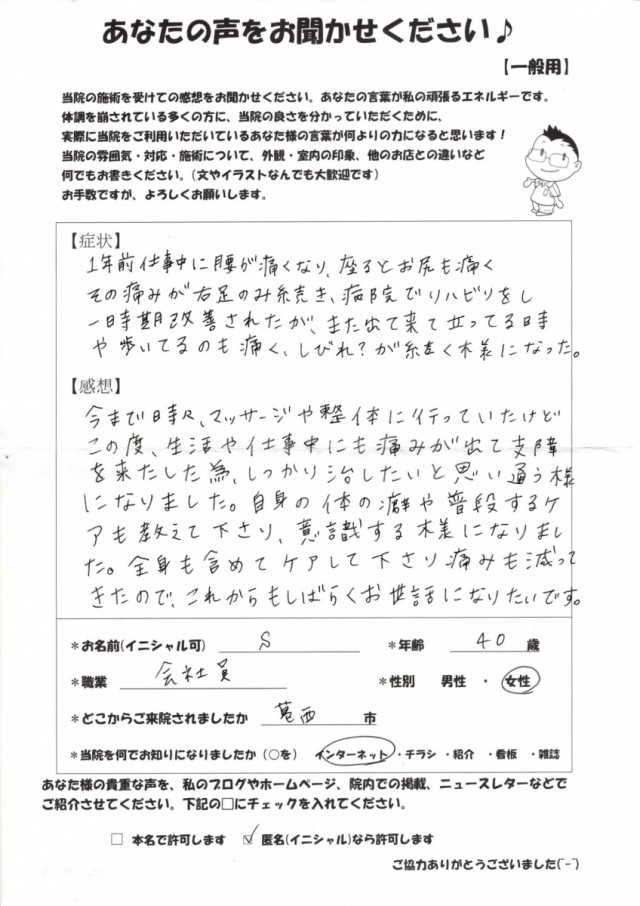 あなたの声をお聞かせください♪
【一般用】
当院の施術を受けての感想をお聞かせください。あなたの言葉が私の頑張るエネルギーです。
体調を崩されている多くの方に、当院の良さを分かっていただくために、
実際に当院をご利用いただいているあなた様の言葉が何よりの力になると思います！
当院の雰囲気・対応・施術について、外観・室内の印象、他のお店との違いなど
何でもお書きください。（文やイラストなんでも大歓迎です）
お手数ですが、よろしくお願いします。
【症状】
1年前仕事中に腰が痛くなり、座るとお尻も痛く
その痛みが右足のみ続き、病院でリハビリをし
一時期改善されたが、また出て来て立ってる時
や歩いてるのも痛く、しびれ？が続く様になった。
【感想】
今まで時々、マッサージや整体に行っていたけど
この度、生活や仕事中にも痛みが出て支障
を来たした為、しっかり治したいと思い通う様
になりました。自身の体の癖や普段するケ
アも教えて下さり、意識する様になりまし
た。全身も含めてケアして下さり痛みも減って
きたので、これからもしばらくお世話になりたいです。
＊お名前(イニシャル可) S ＊年齢 40 歳
＊職業 会社員 ＊性別 男性 ・ 女性
＊どこからご来院されましたか 葛西 市
＊当院を何でお知りになりましたか（○を） インターネット ・チラシ ・紹介 ・看板 ・雑誌
あなた様の貴重な声を、私のブログやホームページ、院内での掲載、ニュースレターなどで
ご紹介させてください。下記の□にチェックを入れてください。
□ 本名で許可します ☑ 匿名(イニシャル)なら許可します
ご協力ありがとうございました(^-^)